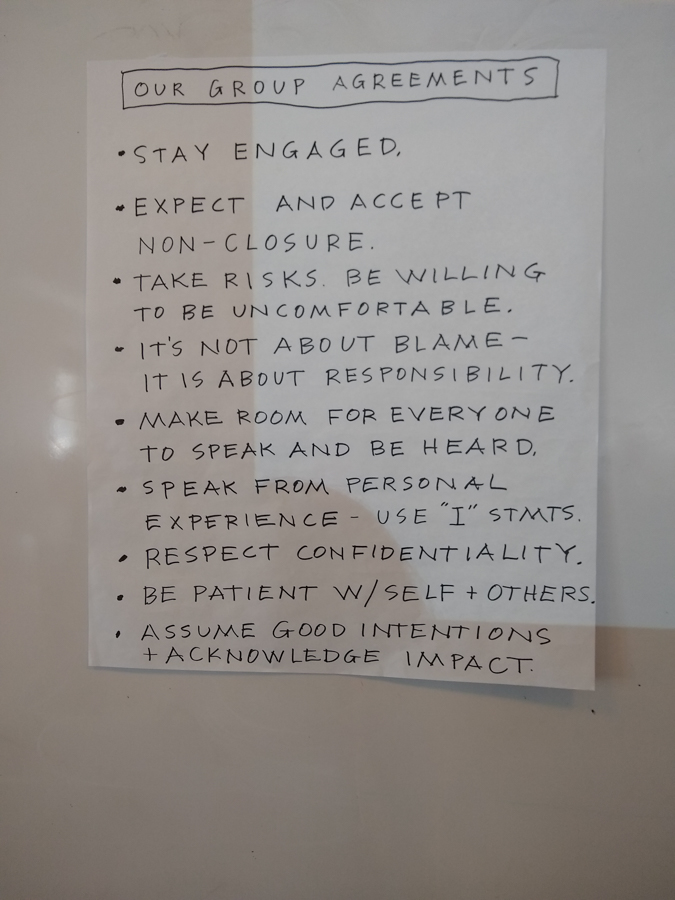 OUR GROUP AGREEMENTS
• STAY ENGAGED.
• EXPECT AND ACCEPT
NON-CLOSURE.
• TAKE RISKS. BE WILLING
TO BE UNCOMFORTABLE.
• IT'S NOT ABOUT BLAME—
IT IS ABOUT RESPONSIBILITY.
• MAKE ROOM FOR EVERYONE
TO SPEAK AND BE HEARD.
• SPEAK FROM PERSONAL
EXPERIENCE - USE "I" STMTS.
• RESPECT CONFIDENTIALITY.
• BE PATIENT W/SELF + OTHERS.
• ASSUME GOOD INTENTIONS
+ ACKNOWLEDGE IMPACT.